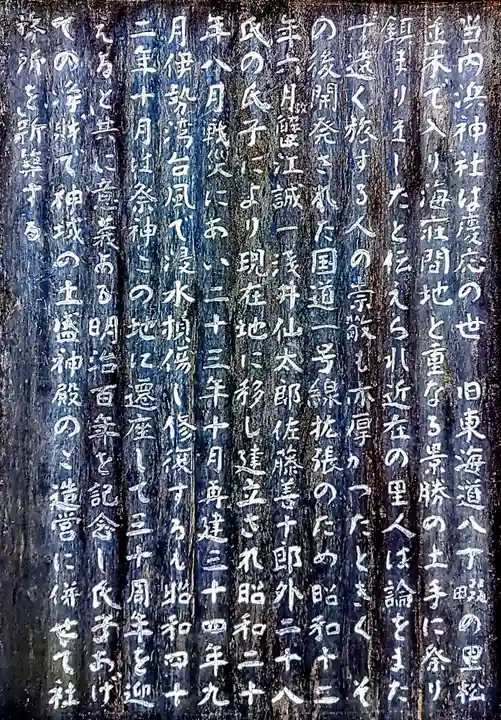 当内浜神社は慶応の世 旧東海道八丁畷の里松
並木で入り海荘間地と重なる景勝の土手に祭り
鎮まり在したと伝えられ近在の里人は論をまた
ず遠く旅する人の崇敬も亦厚かつたときく そ
の後開発された国道一号線拡張のため昭和十二
年六月蟹江誠一浅井仙太郎佐藤善十郎外二十八
氏の氏子により現在地に移し建立され昭和二十
年八月戦災にあい二十三年十月再建三十四年九
月伊勢湾台風で浸水損傷し修復するも昭和四十
二年十月は祭神この地に還座して三十周年を迎
える と共に意義ある明治百年を記念し氏子あげ
ての浄財で神域の土盛神殿のご造営に併せて社
務所を新築する